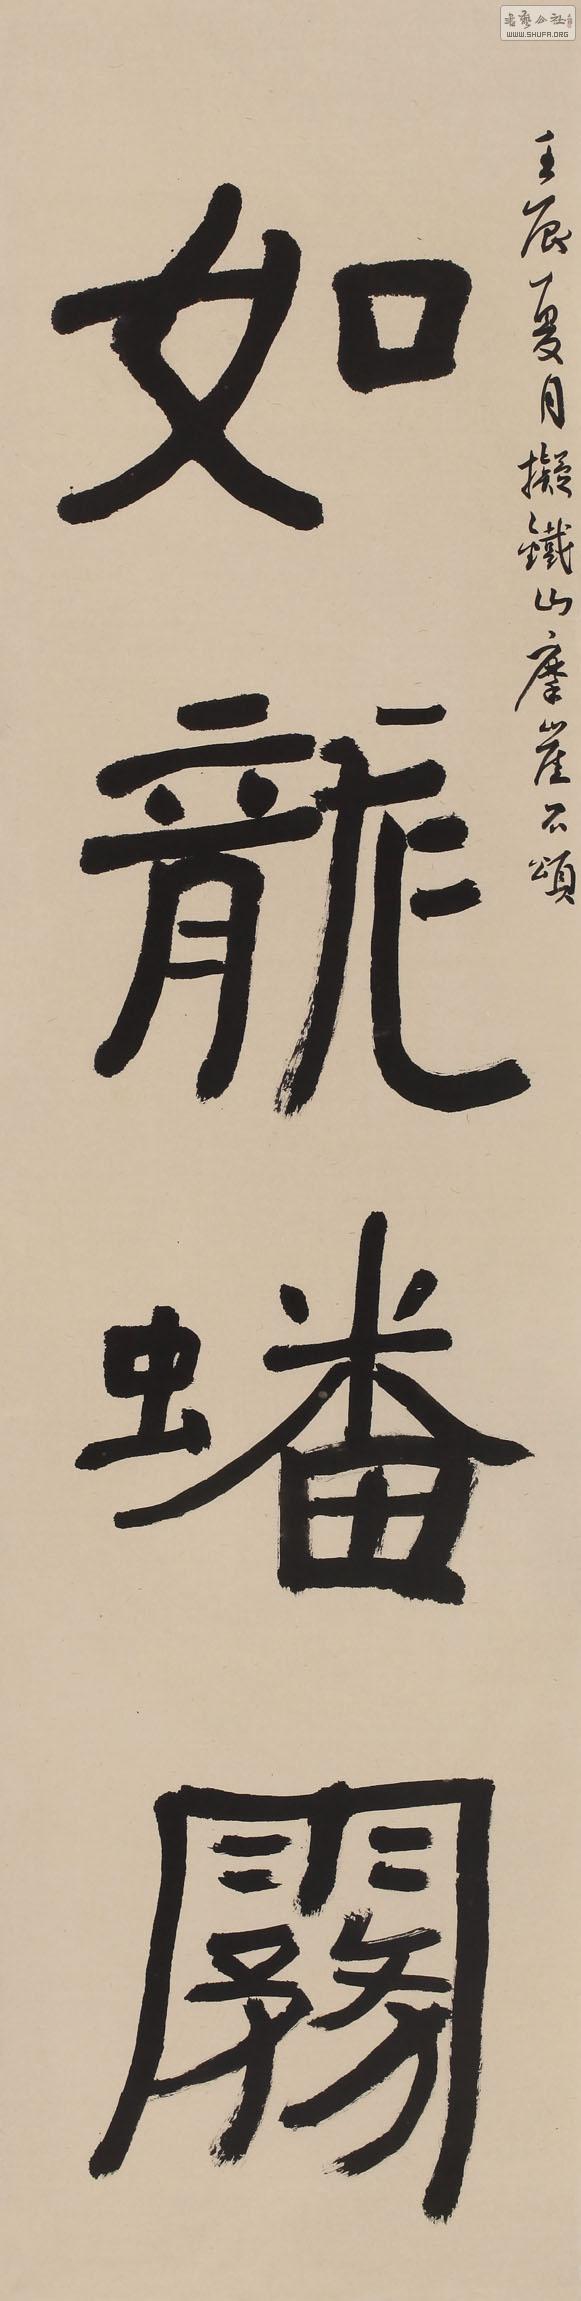 壬辰夏月擬鐵山摩崖石頌
如龍蟠霧
書藝公社
WWW.SHUFA.ORG